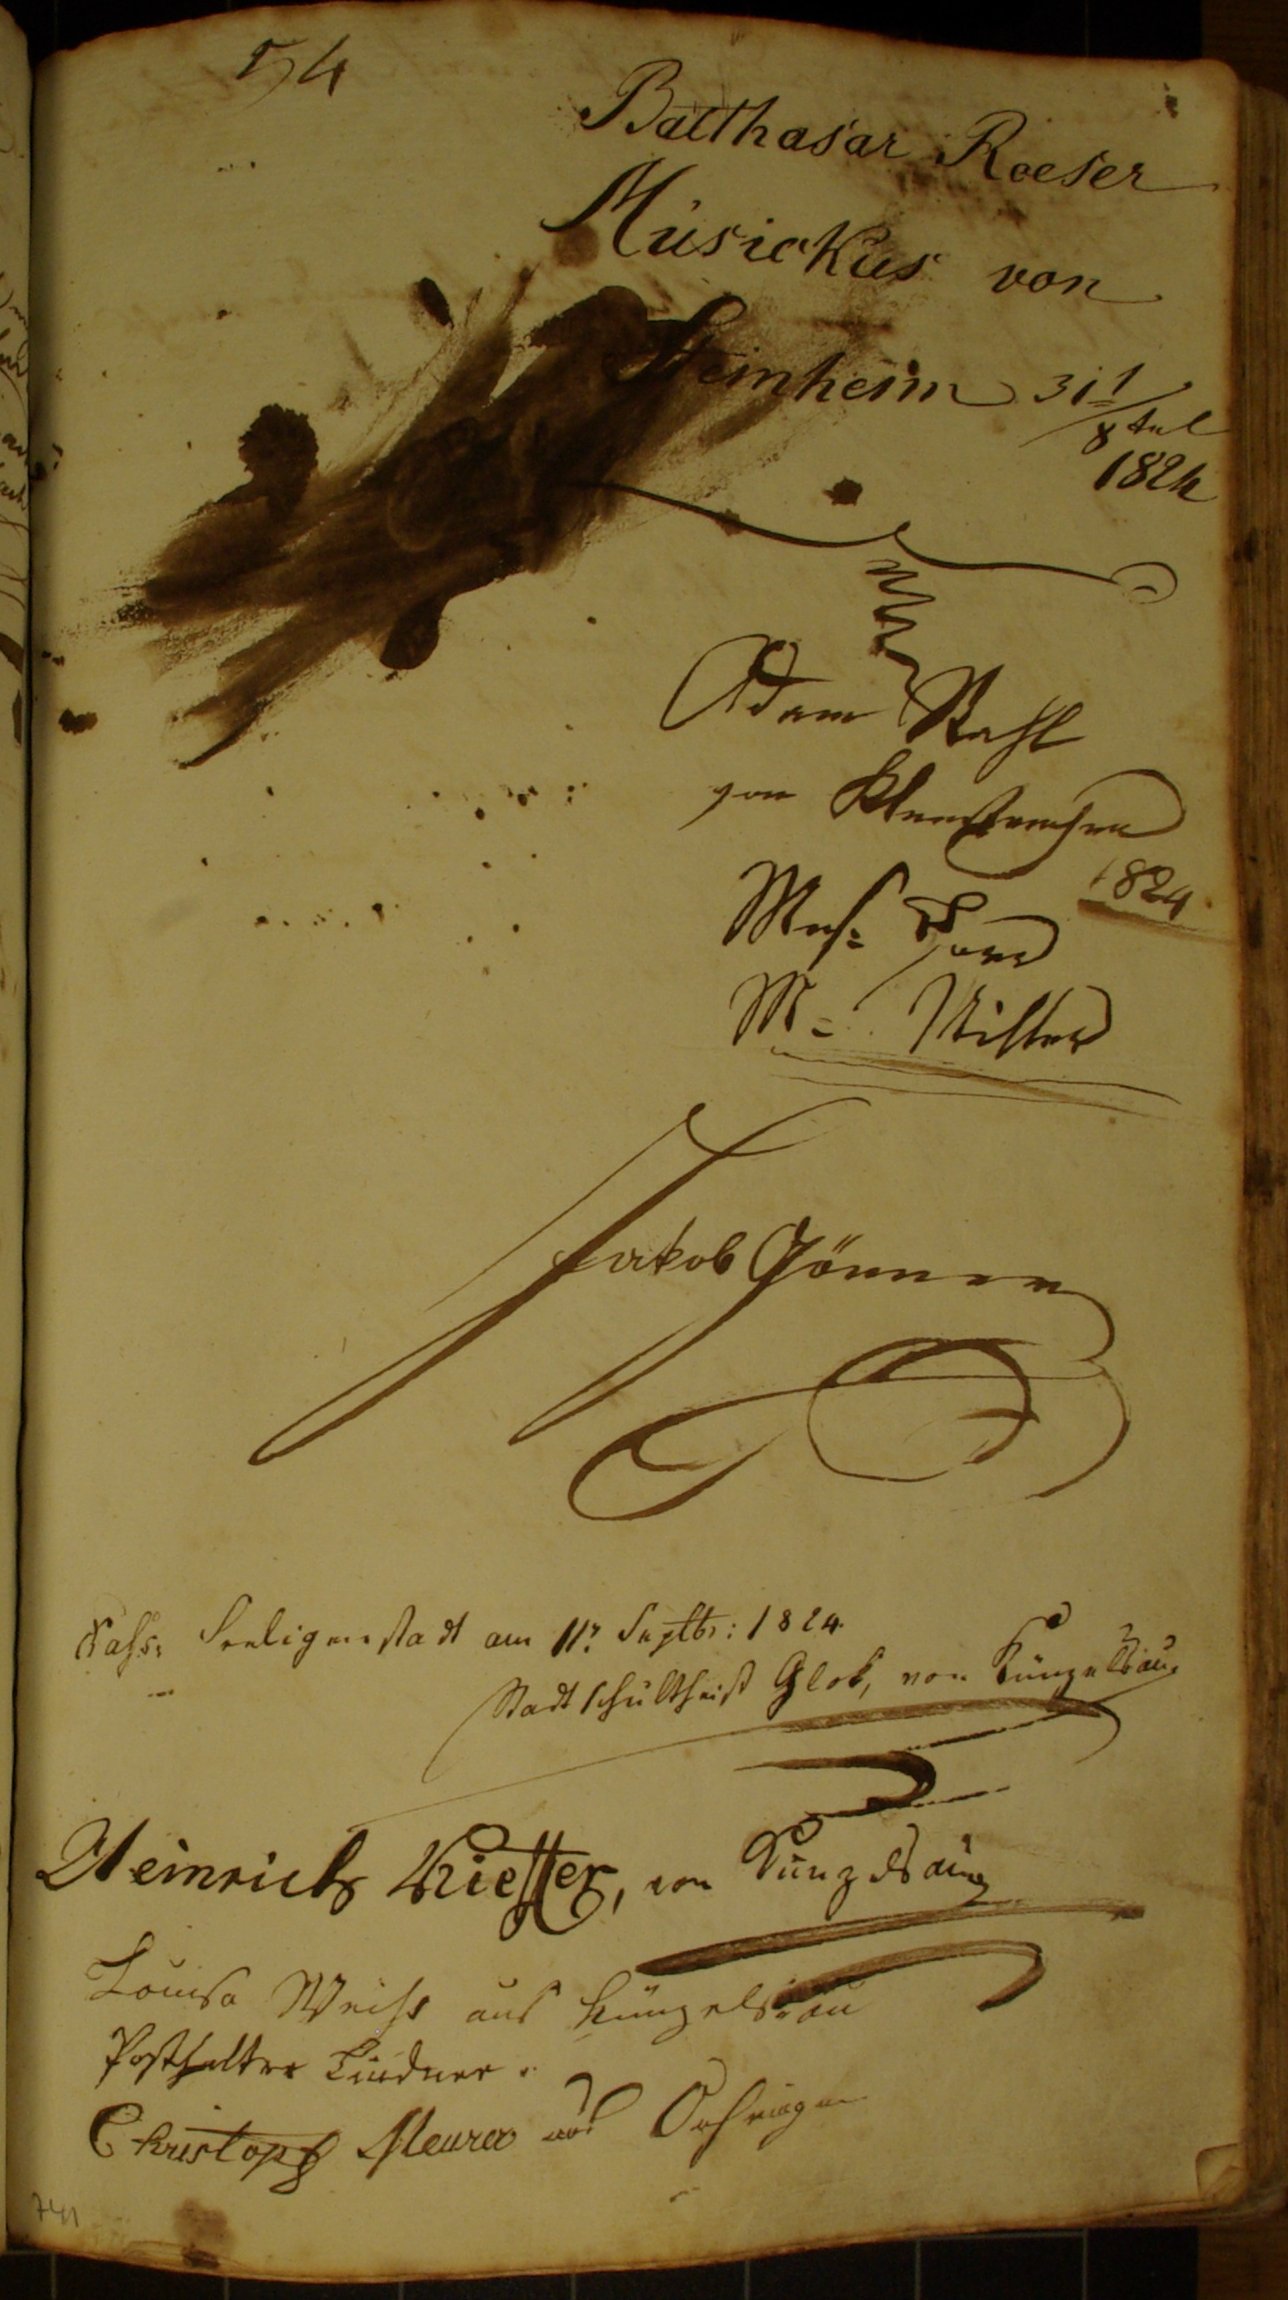 54
Balthasar Roeser
Musickus von
Steinheim 31 1/8 tel
1824
Adam Stahl
von
1824
M=
Jakob Gönner
Seeligenstadt am 11t Septbr: 1824.
Stadtschultheiß Glok, von Künzelsau
Heinrich, von Künzelsau
Louise Weiss aus Künzelsau
Posthalter Lindner.
Christoph Meurer aus Oehringen
741